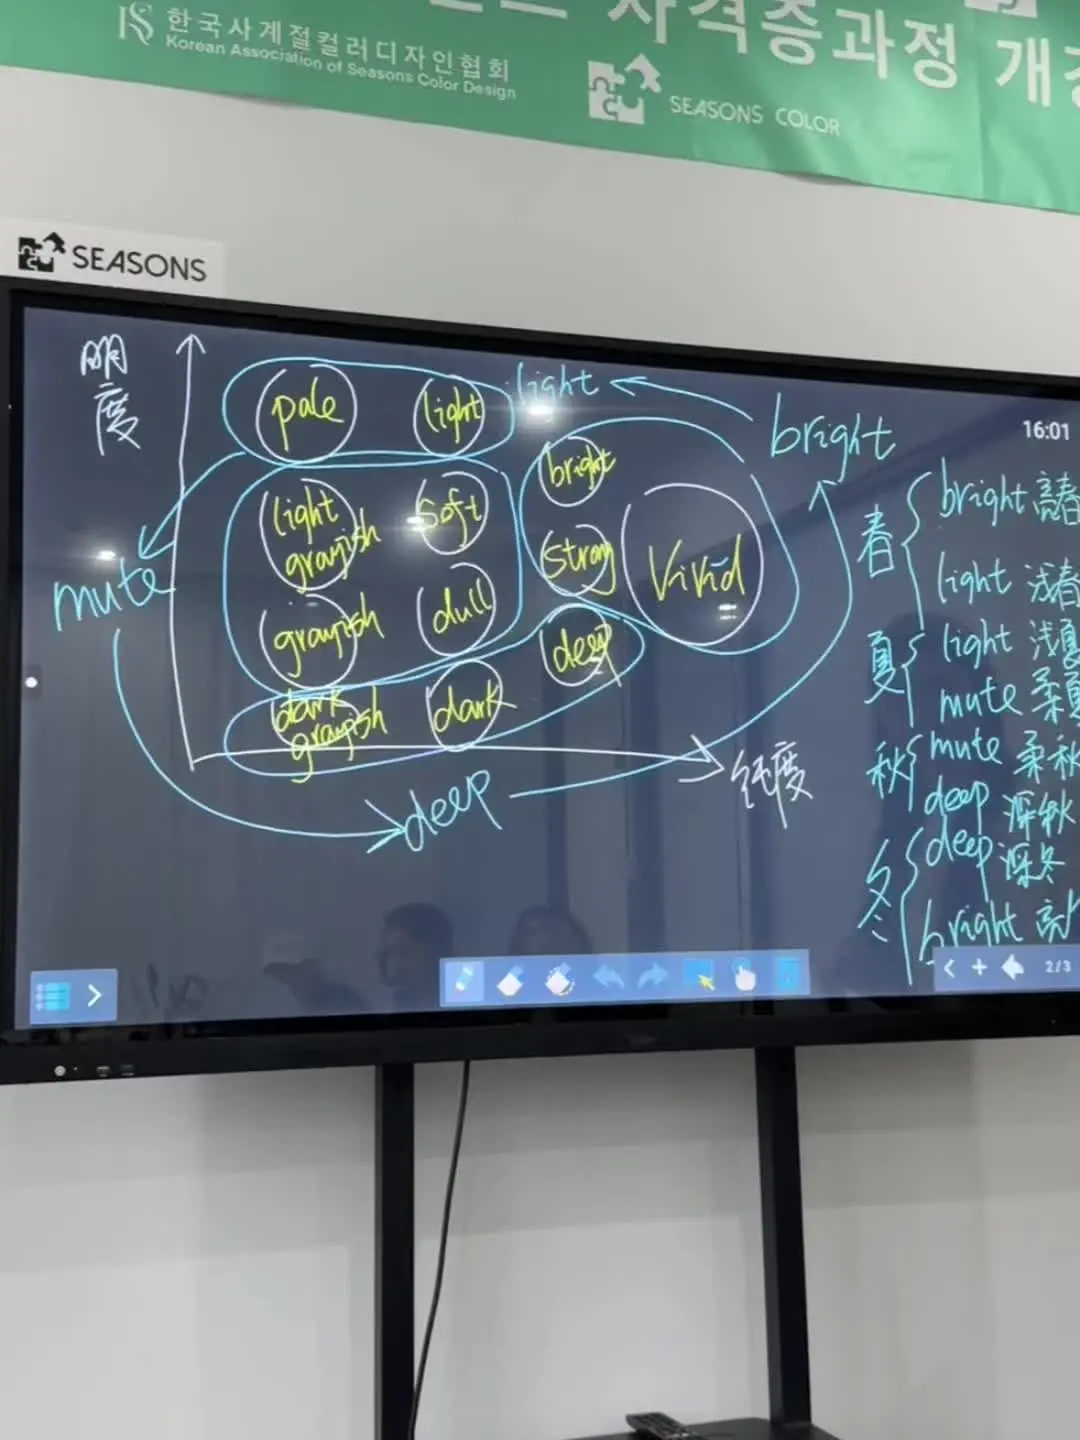 한국사계절컬러디자인협회
Korean Association of Seasons Color Design
자격증과정 개
SEASONS COLOR
SEASONS
明度
pale
light
light
bright
16:01
light grayish
soft
bright
strong
Vivid
mute
grayish
dull
deep
dark grayish
dark
deep
纯度
春
bright
light 浅春
夏
light 浅夏
mute 柔夏
秋
mute 柔秋
deep 深秋
冬
deep 深冬
bright
2/3